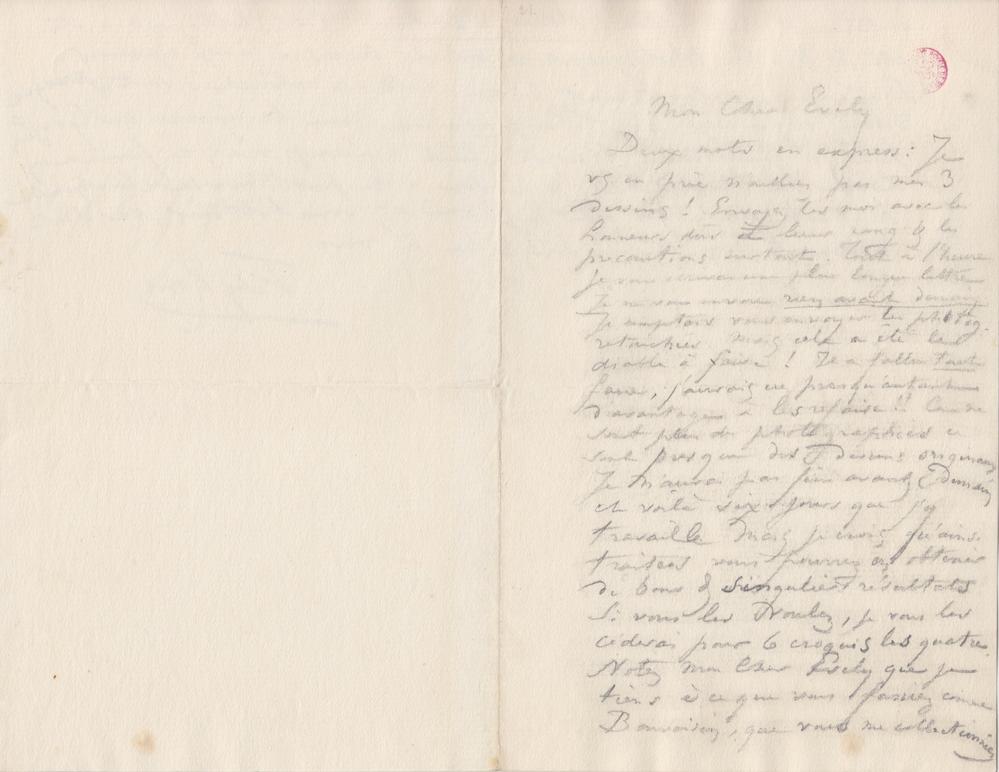 21
Mon Cher Evely
Deux mots en express: Je
vs en prie n'oubliez pas mes 3
dessins! Envoyez les moi avec les
honneurs dûs à leur rang & les
precautions surtout. Tout à l'heure
je vous une plus longue lettre
Je ne vous enverrai rien avant demain
Je comptais vous envoyer les photog.
retouchées mais cela a été le
diable à faire! Il a fallu tout
faire, j'aurais eu presqu'autant
d'avantages à les refaire!! Ce ne
sont plus des photographies ce
sont presque des dessins originaux
Je n'aurai pas fini avant Demain
et voilà six jours que j'y
travaille Mais je crois qu'ainsi
traitées vous pourrez en obtenir
de bons & singuliers résultats
Si vous les Voulez, je vous les
céderai pour 6 croquis les quatre.
Notez mon Cher Evely que je
tiens à ce que vous fassiez comme
que vous me collectionniez